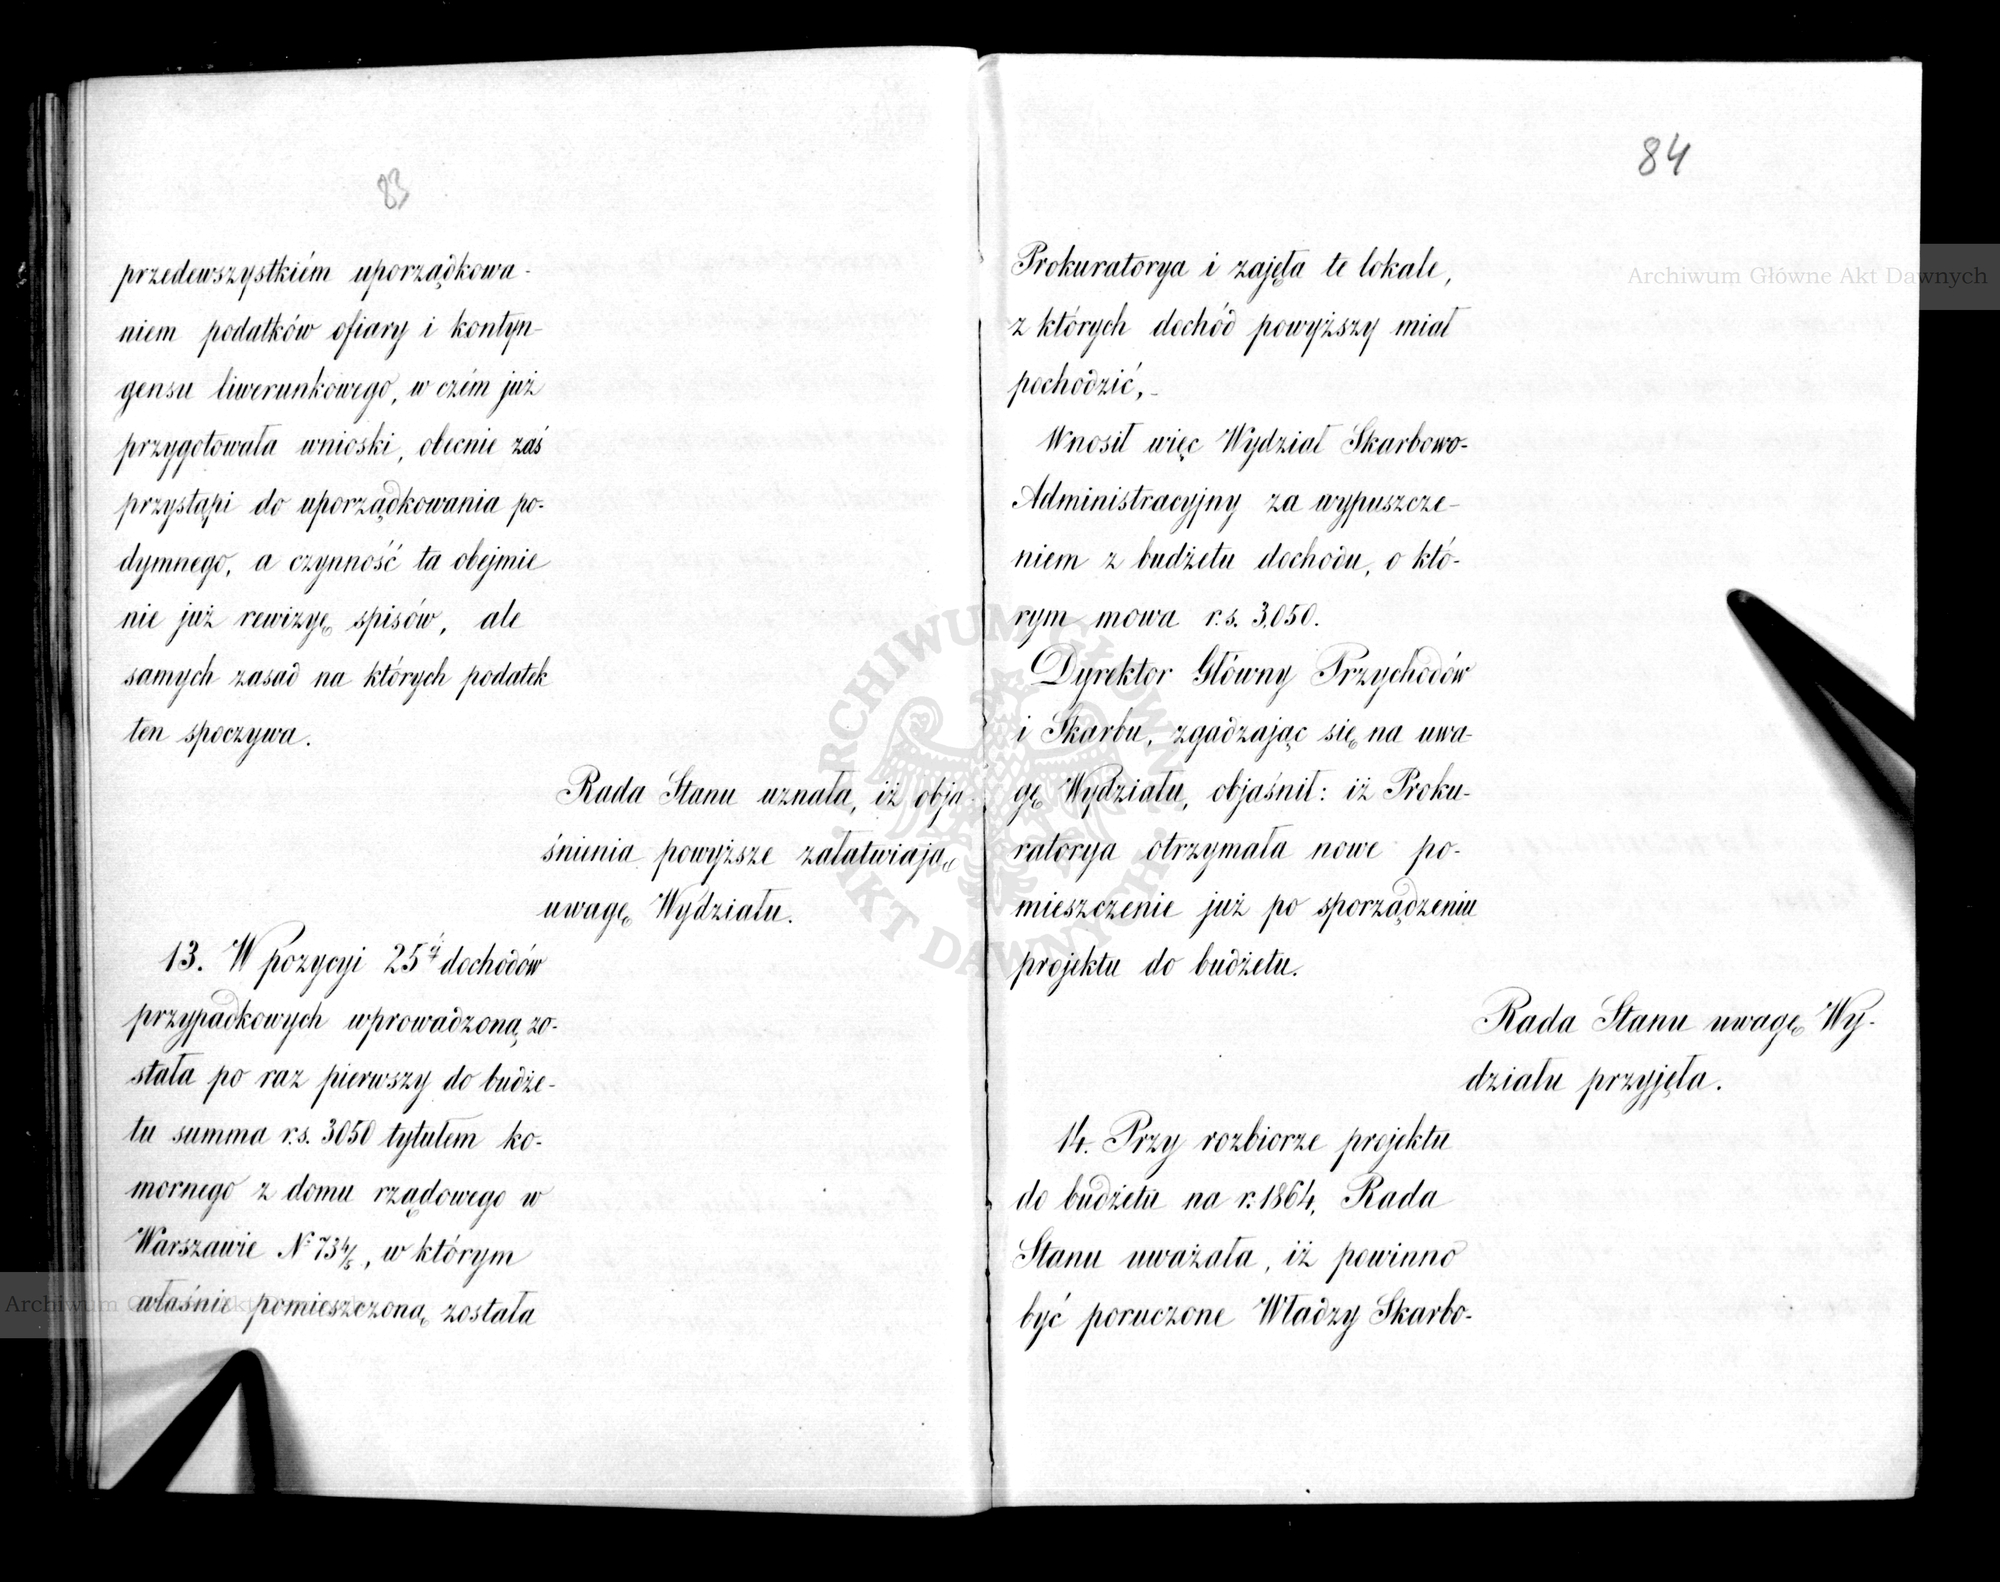 83
przedewszystkiém uporządkowa-
niem podatków ofiary i kontyn-
gensu liwerunkowego, w czém już
przygotowała wnioski, obecnie zaś
przystąpi do uporządkowania po-
dymnego, a czynność ta obejmie
nie już rewizyę spisów, ale
samych zasad na których podatek
ten spoczywa.
Rada Stanu uznała, iż obja-
śnienia powyższe załatwiają
uwagę Wydziału.
13. W pozycyi 25éj dochodów
przypadkowych wprowadzoną zo-
stała po raz pierwszy do budże-
tu summa r.s. 3050 tytułem ko-
mornego z domu rządowego w
Warszawie N: 734/5, w którym
właśnie pomieszczoną została
84
Prokuratorya i zajęła te lokale,
z których dochód powyższy miał
pochodzić,-
Wnosił więc Wydział Skarbowo-
Administracyjny za wypuszcze-
niem z budżetu dochodu, o któ-
rym mowa r.s. 3,050.
Dyrektor Główny Przychodów
i Skarbu, zgadzając się na uwa-
gę Wydziału, objaśnił: iż Proku-
ratorya otrzymała nowe po-
mieszczenie już po sporządzeniu
projektu do budżetu.
Rada Stanu uwagę Wy-
działu przyjęła.
14. Przy rozbiorze projektu
do budżetu na r. 1864, Rada
Stanu uważała, iż powinno
być poruczone Władzy Skarbo-
Archiwum Główne Akt Dawnych
Archiwum Główne Akt Dawnych
ARCHIWUM GŁÓWNE AKT DAWNYCH